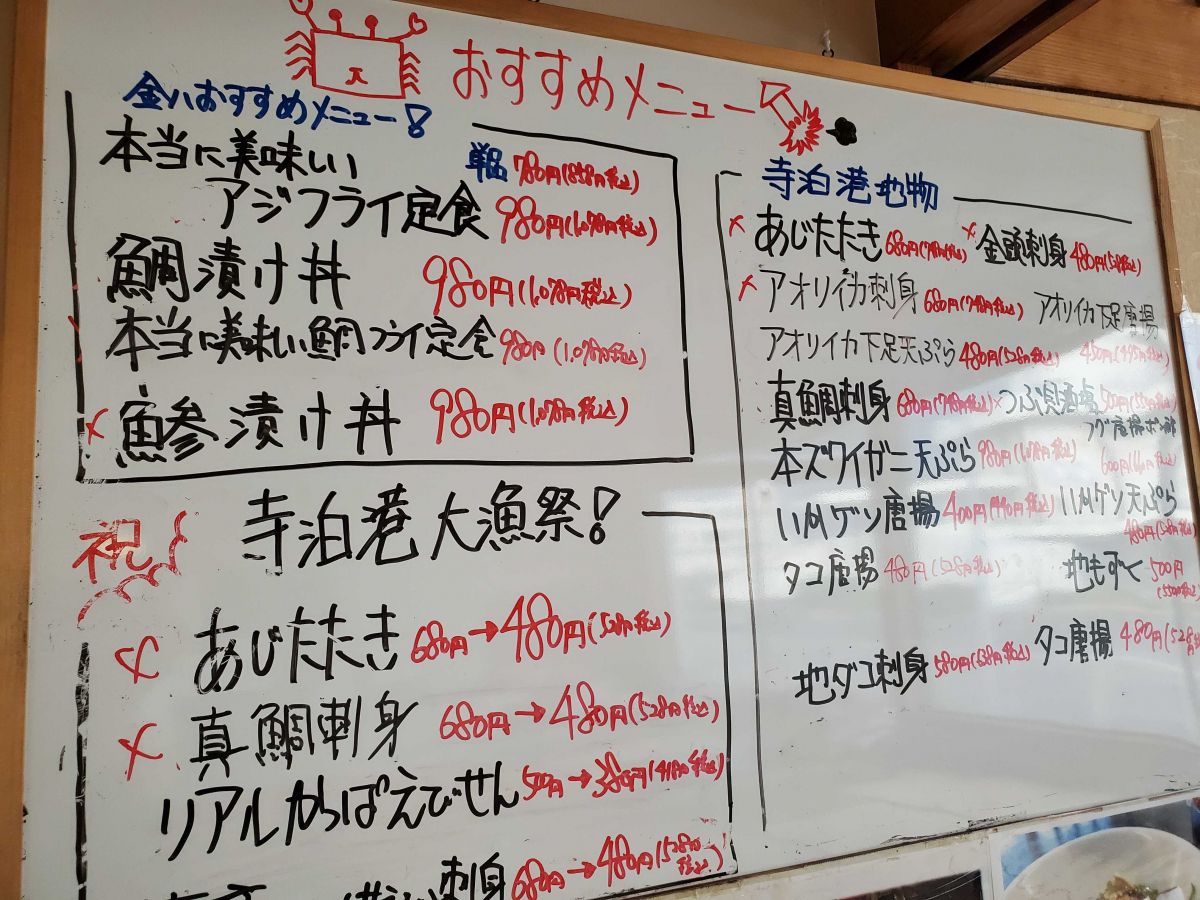 おすすめメニュー
金八おすすめメニュー!
本当に美味しい 単品 780円(858円税込)
アジフライ定食 980円(1,078円税込)
鯛漬け丼 980円(1,078円税込)
本当に美味しい鯛フライ定食 980円(1,078円税込)
× 魚参漬け丼 980円(1,078円税込)
祝 寺泊港大漁祭!
× あじたたき 680円→480円(528円税込)
× 真鯛刺身 680円→480円(528円税込)
リアルかっぱえびせん 500円→380円(418円税込)
刺身 680円→480円(528円税込)
寺泊港地物
× あじたたき 680円(748円税込) × 金頭刺身 480円(528円税込)
× アオリイカ刺身 680円(748円税込) アオリイカ下足唐揚
アオリイカ下足天ぷら 480円(528円税込) 450円(495円税込)
真鯛刺身 680円(748円税込) × つぶ貝酒塩 500円(550円税込)
フグ唐揚ポン酢
本ズワイガニ天ぷら 980円(1,078円税込) 600円(660円税込)
いかゲソ唐揚 400円(440円税込) いかゲソ天ぷら
480円(528円税込)
タコ唐揚 480円(528円税込) 地もずく 500円
(550円税込)
地ダコ刺身 580円(638円税込) タコ唐揚 480円(528円